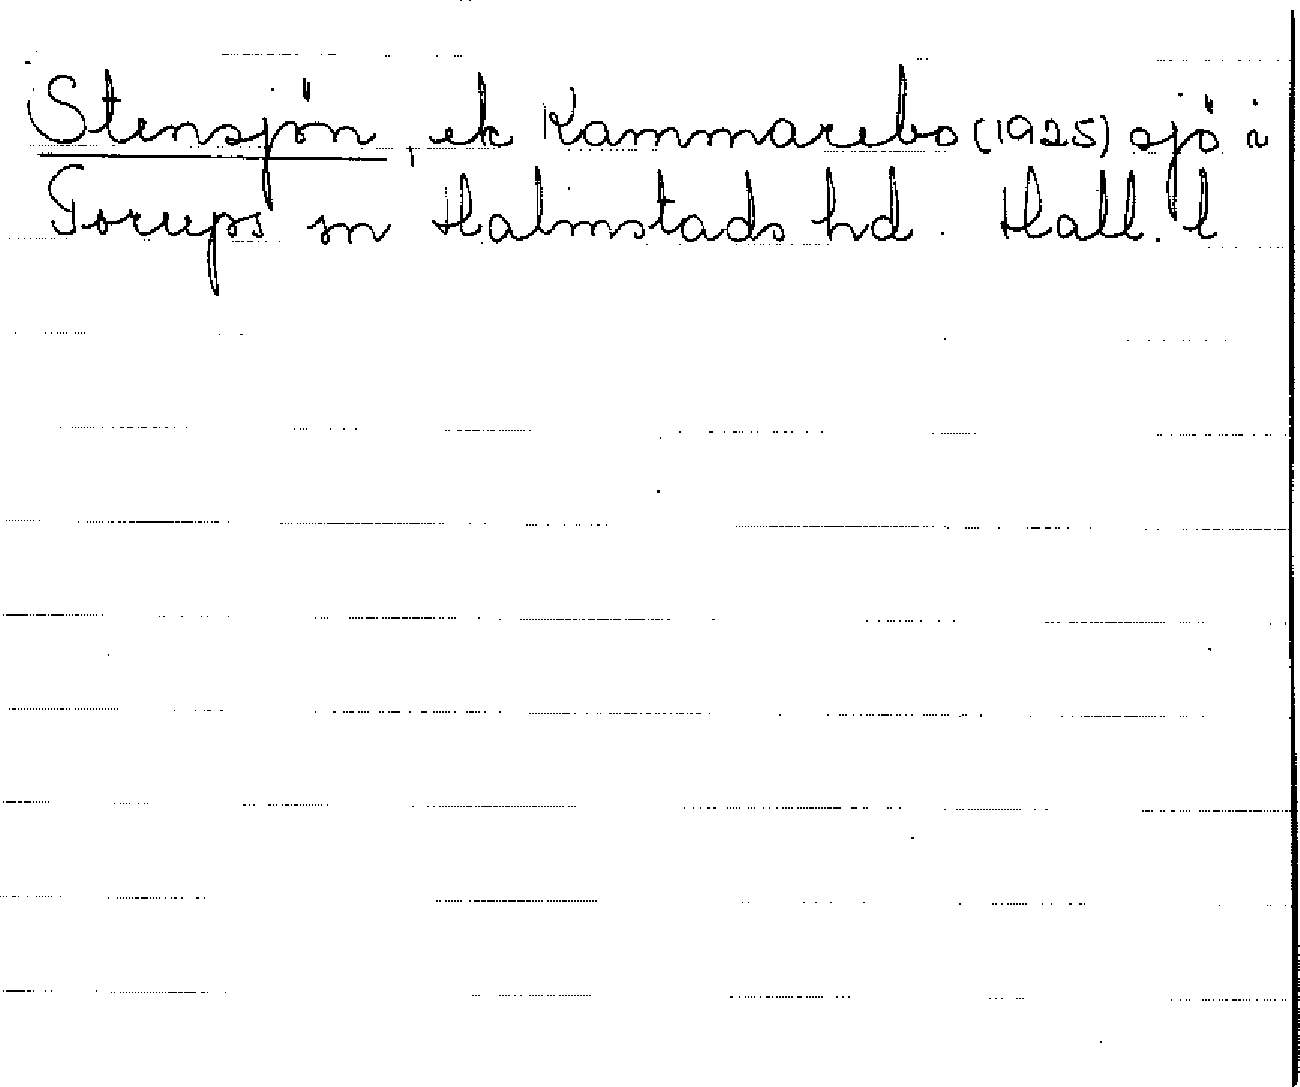 Stensjön, ek Kammarebo (1925) sjö i
Torups sn Halmstads hd. Hall. l